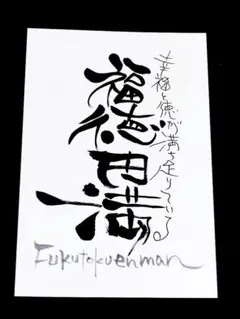 幸福と徳が満ち足りている。
福徳円満
Fukutokuenman